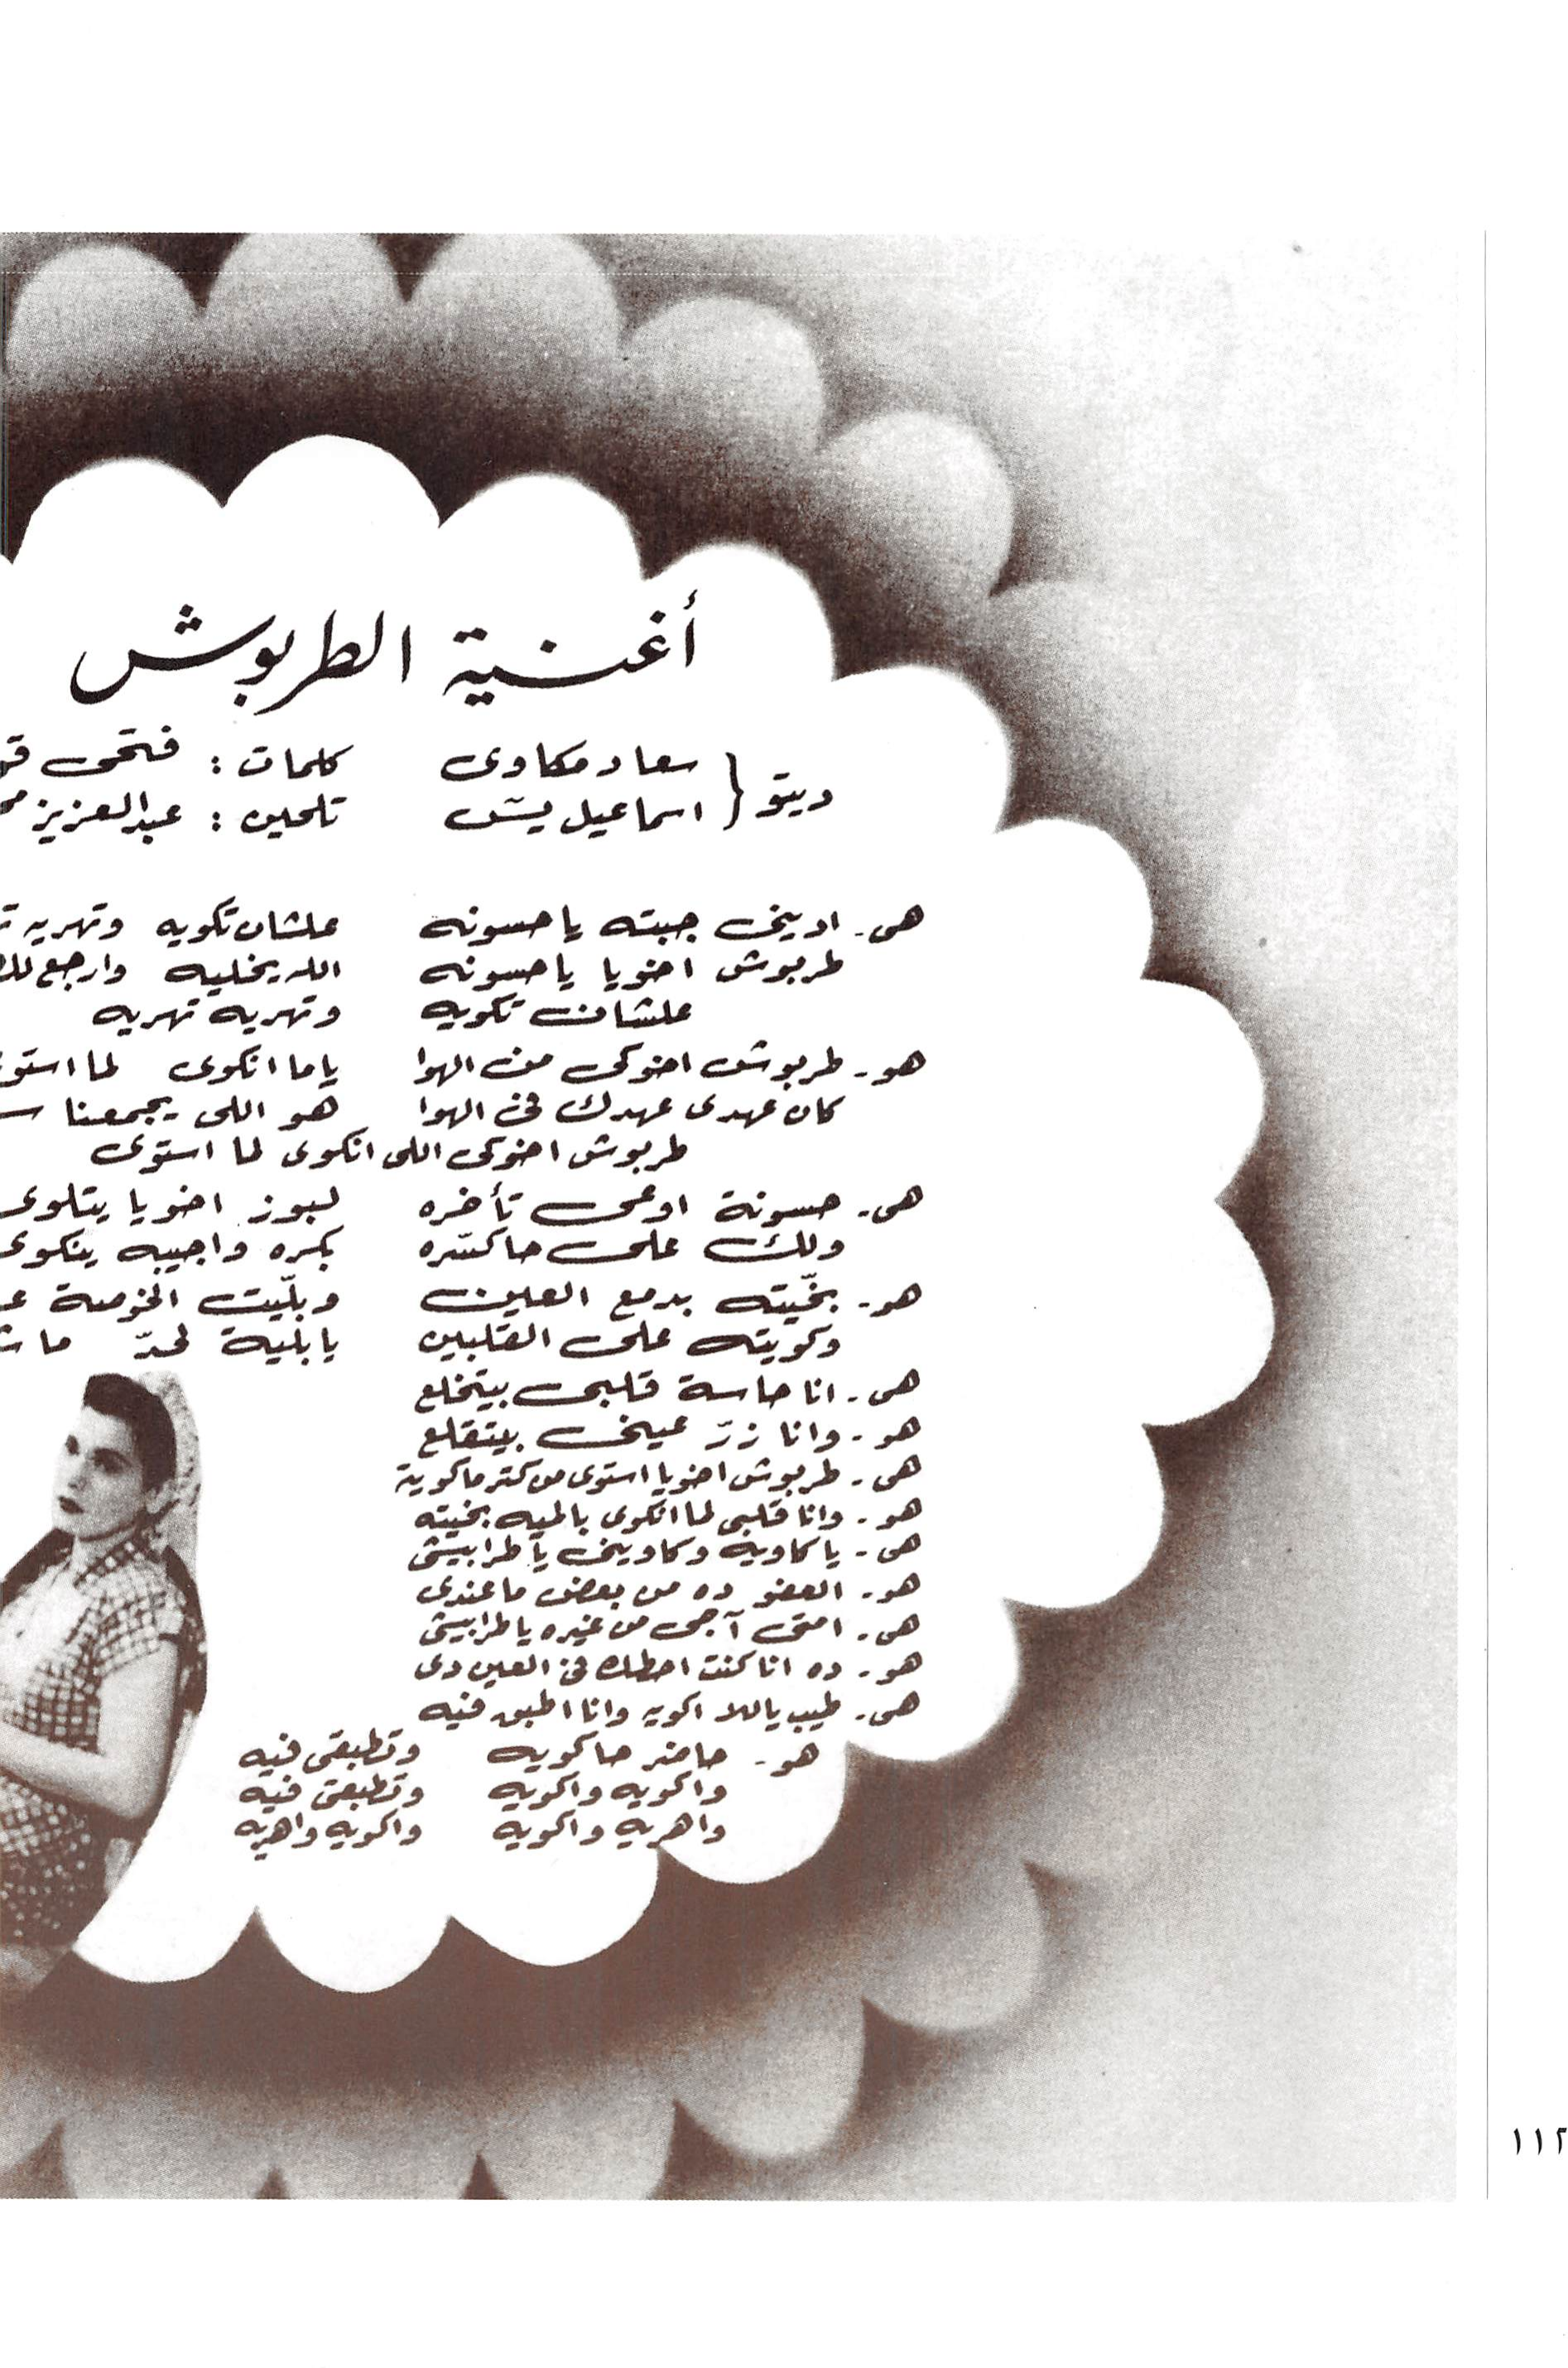 أغنية الطربوش
ديتو { سعاد مكاوى كلمات : فتحى
اسماعيل يسّ تلحين : عبدالعزيز
هى - ادينى جبته يا حسونه علشان تكويه وتهريه
طربوش اخويا يا حسونه الله يخليه وارجع
علشان تكويه وتهريه تهريه
هو - طربوش اخوكى من الهوا ياما انكوى لما
كان عهدى عهدك فى الهوا هو اللى يجمعنا
طربوش اخوكى اللى انكوى لما استوى
هى - حسونة اوعى تأخره لبوز اخويا يتلوى
ولك على حاكسّره بكره واجيبه ينكوى
هو - بخّيته بدمع العين وبلّيت الخوصة
وكويته على القلبين يا بلية لحدّ
هى - انا حاسة قلبى بيتخلع
هو - وانا زرّ عينى بيتقلع
هى - طربوش اخويا استوى من كتر ما كويته
هو - وانا قلبى لما انكوى بالميه بخيته
هى - يا كاويه وكاوينى يا طرابيشى
هو - العفو ده من بعض ما عندى
هى - امتى آجى من غيره يا طرابيشى
هو - ده انا كنت احطك فى العين دى
هى - طيب ياللا اكويه وانا اطبق فيه
هو - حاضر حاكويه وتطبقى فيه
واكويه واكويه وتطبقى فيه
واهريه واكويه واكويه واهريه
١١٢